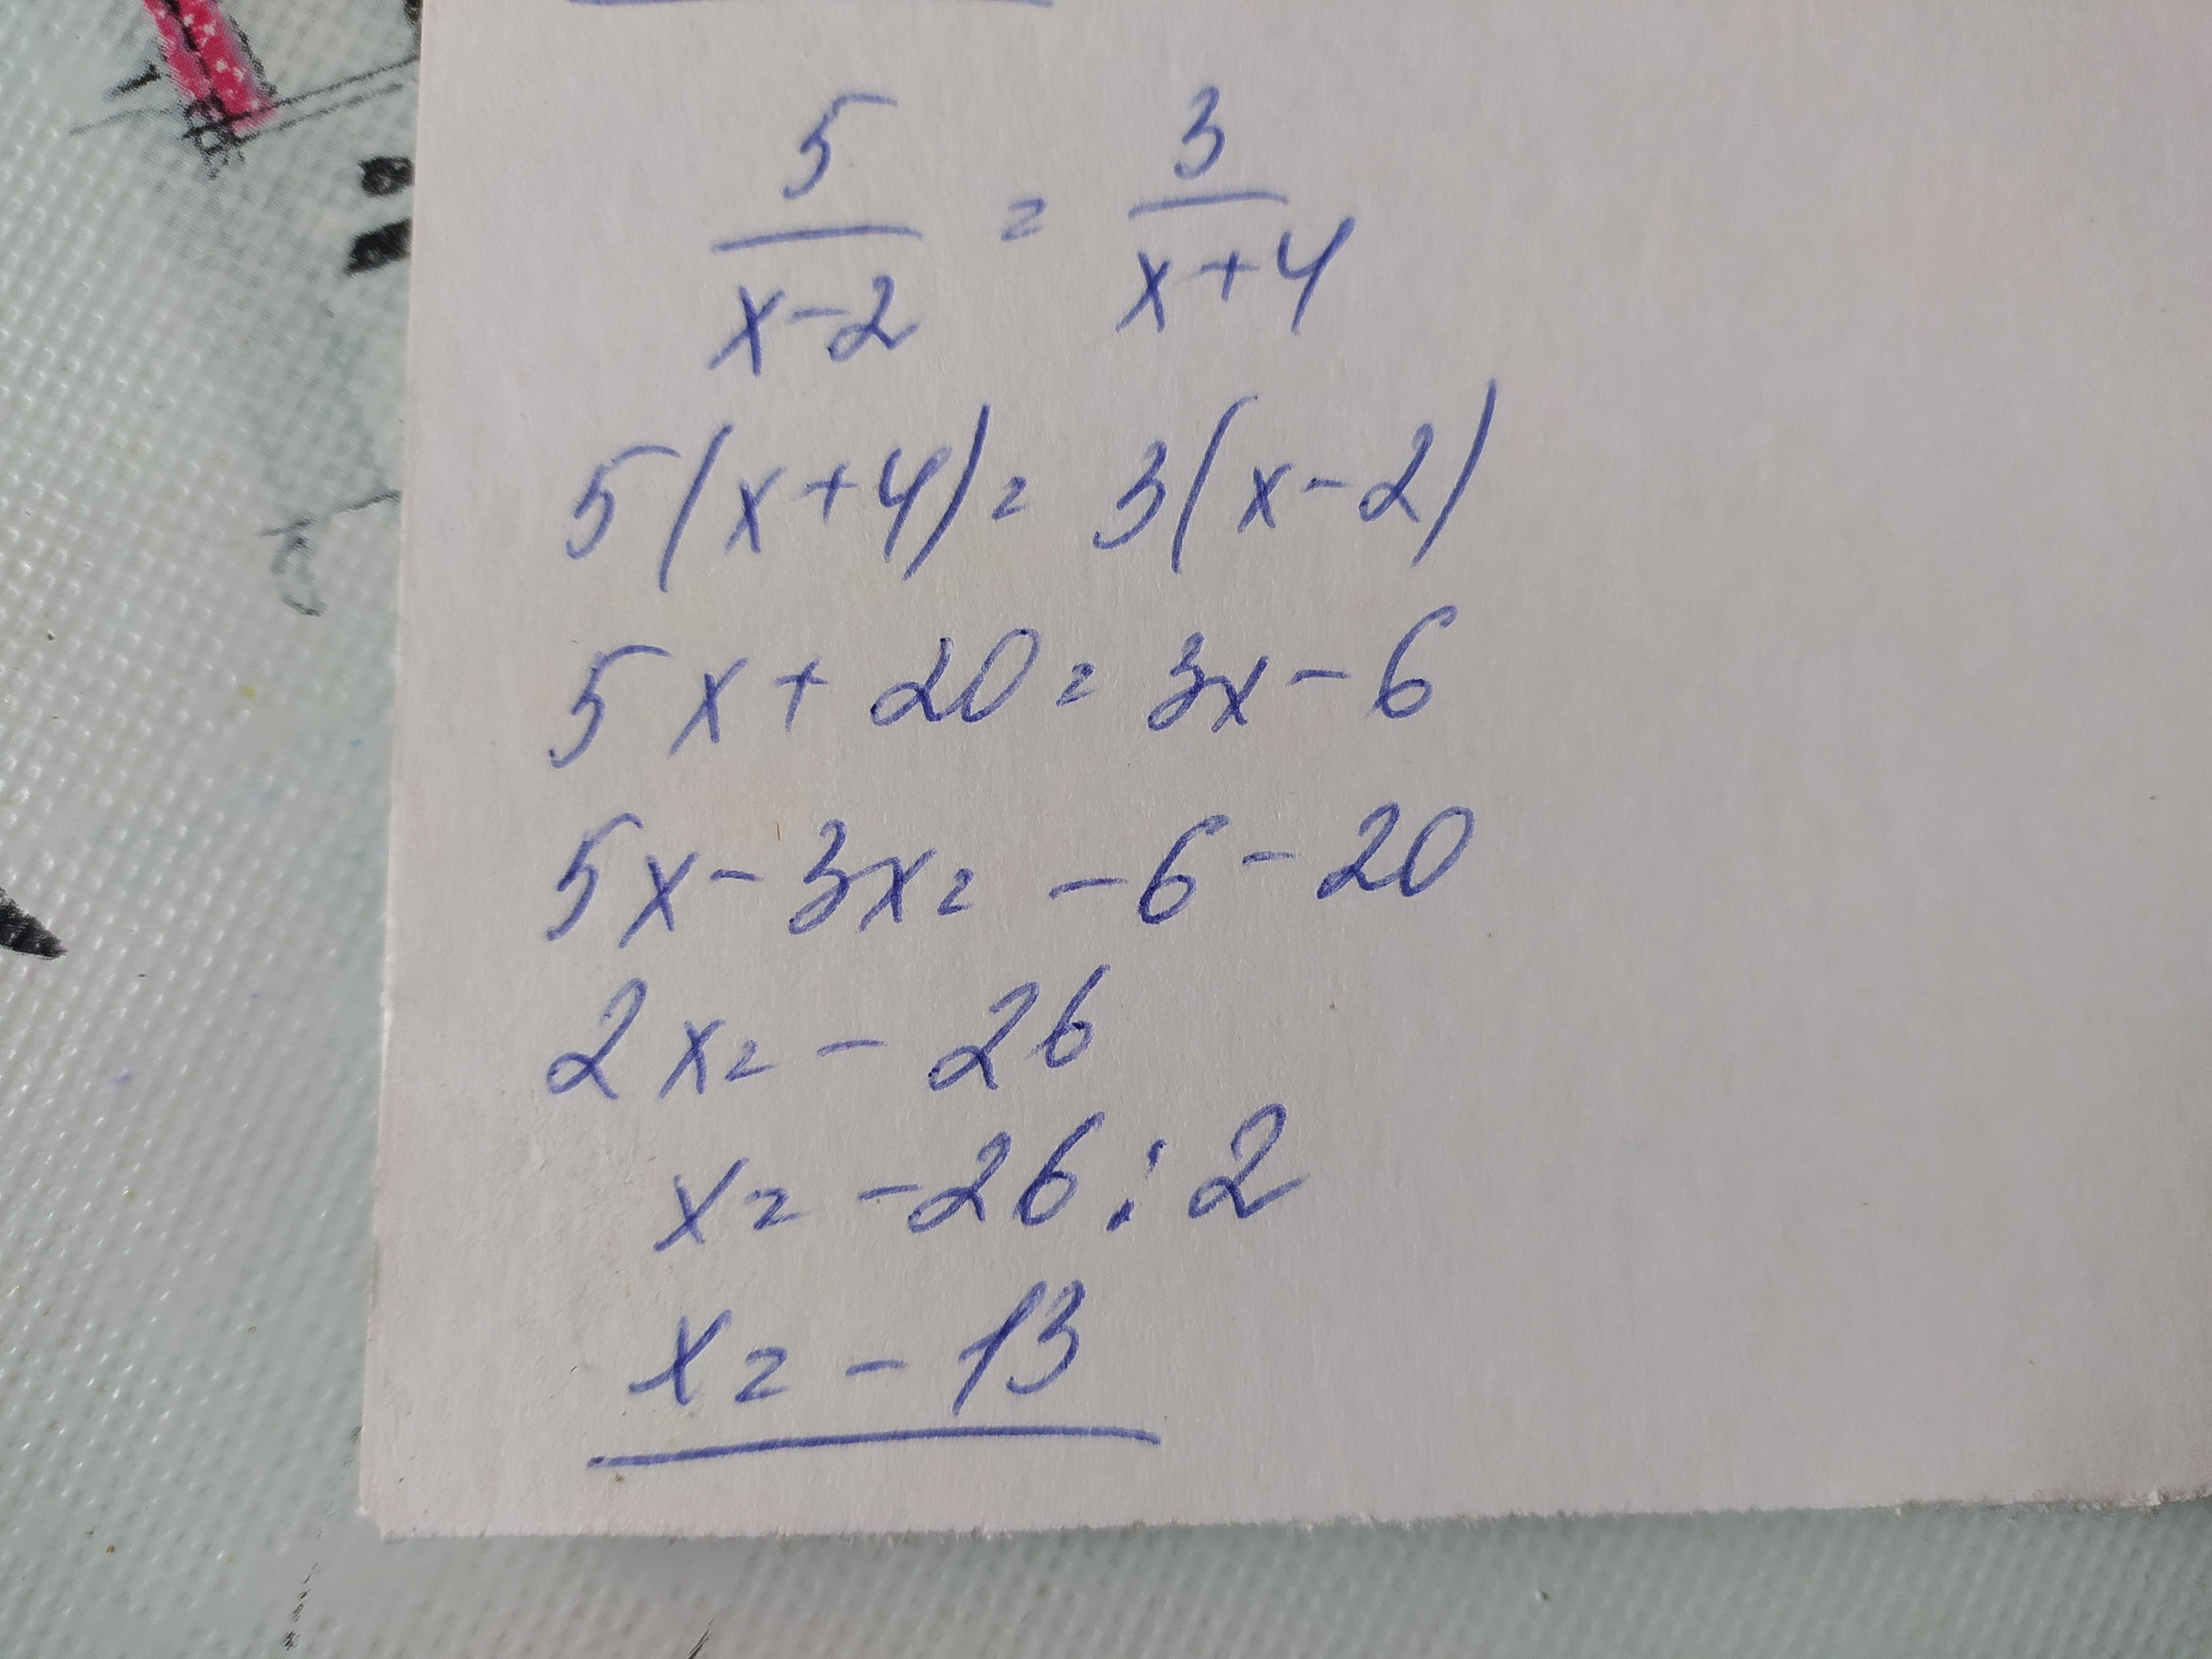 5/(x-2) = 3/(x+4)
5(x+4) = 3(x-2)
5x + 20 = 3x - 6
5x - 3x = -6 - 20
2x = -26
x = -26 : 2
x = -13